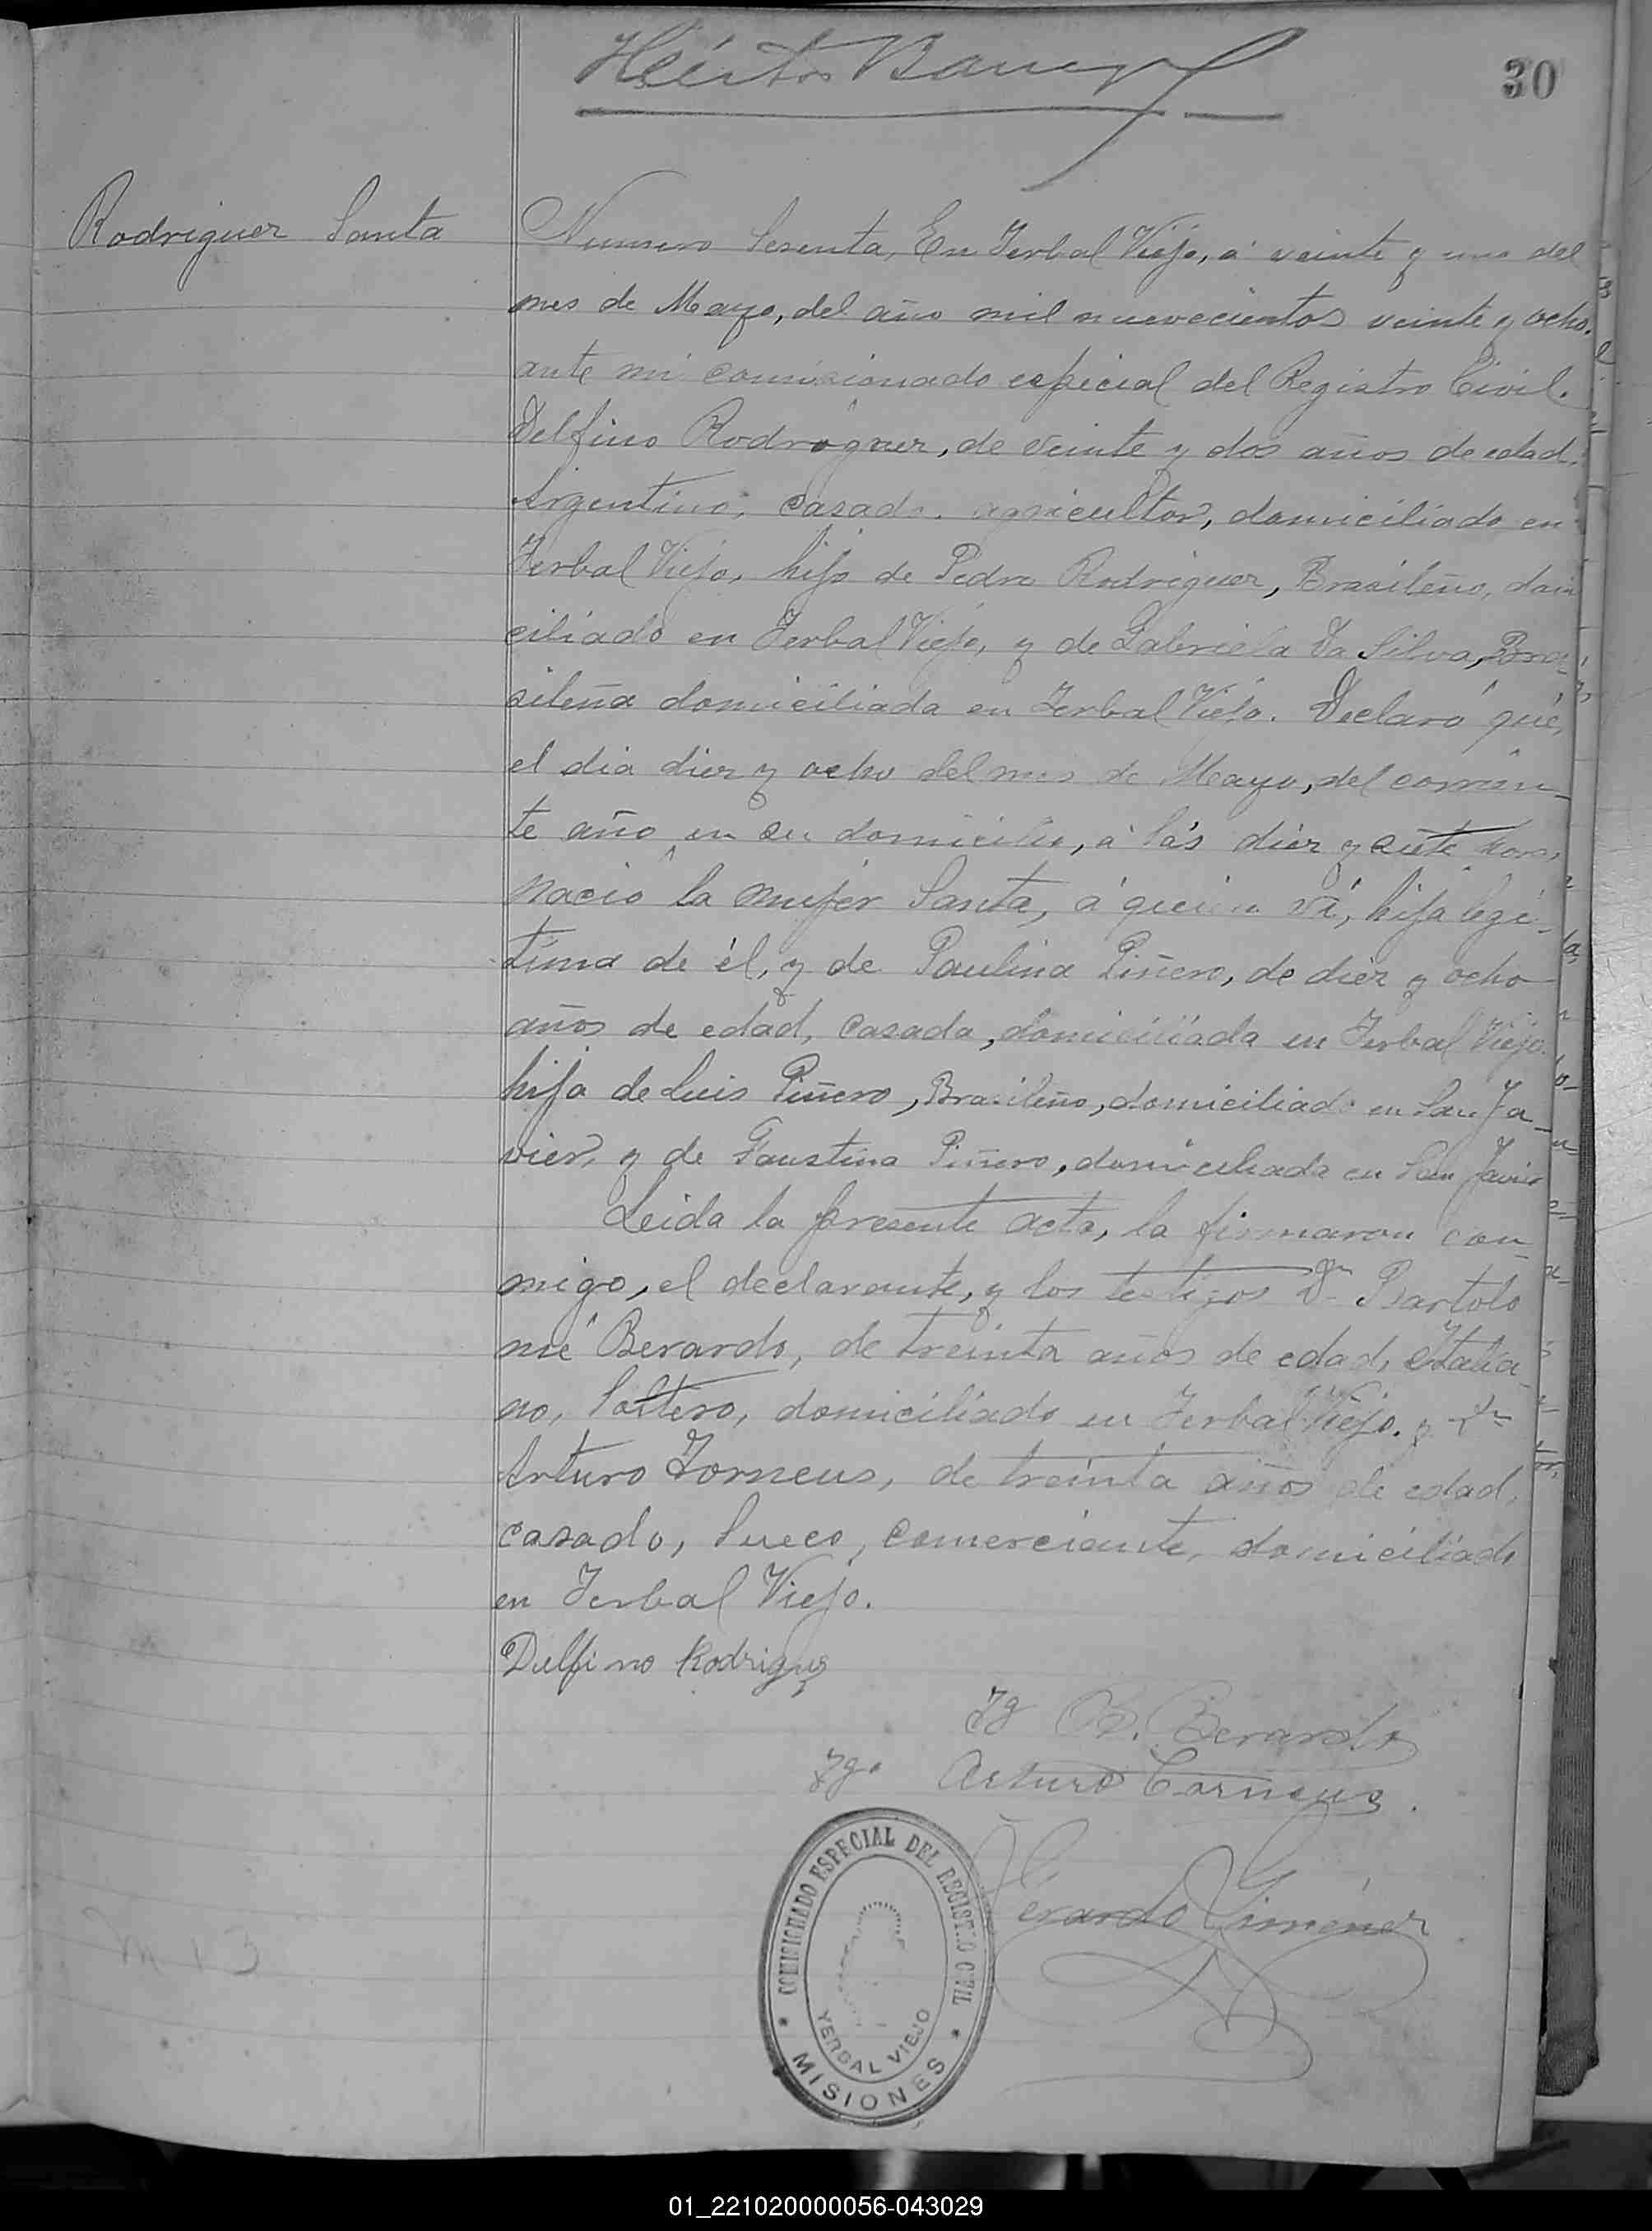 Héctor Barrey
30
Rodriguez Santa
Numero Sesenta, En Yerbal Viejo, á veinte y uno del
mes de Mayo, del año mil nuevecientos veinte y ocho.
ante mi comisionado especial del Registro Civil.
Delfino Rodriguez, de veinte y dos años de edad.
Argentino, casado. agricultor, domiciliado en
Yerbal Viejo, hijo de Pedro Rodriguez, Brasileño, domi
ciliado en Yerbal Viejo, y de Gabriela Da Silva, Bra
sileña domiciliada en Yerbal Viejo. Declaró qué,
el dia diez y ocho del mes de Mayo, del corrien-
te año en su domicilio, á lás diez y siete horas,
nació la mujer Santa, á quien ví, hija legí-
tima de él, y de Paulina Piñero, de diez y ocho
años de edad, casada, domiciliada en Yerbal Viejo.
hija de Luis Piñero, Brasileño, domiciliado en San Ja-
vier, y de Faustina Piñero, domiciliada en San Javier
Leida la presente acta, la firmaron con-
migo, el declarante, y los testigos Dn Bartolo
mé Berardo, de treinta años de edad, Italia-
no, Soltero, domiciliado en Yerbal Viejo. y Dn
Arturo Torneus, de treinta años de edad,
casado, Sueco, comerciante, domiciliado
en Yerbal Viejo.
Delfino Rodriguz
Tg B. Berardo
Tgo Arturo Torneus.
Gérardo Giménez
COMISIONADO ESPECIAL DEL REGISTRO CIVIL
YERBAL VIEJO
* MISIONES *
M 13
01_221020000056-043029